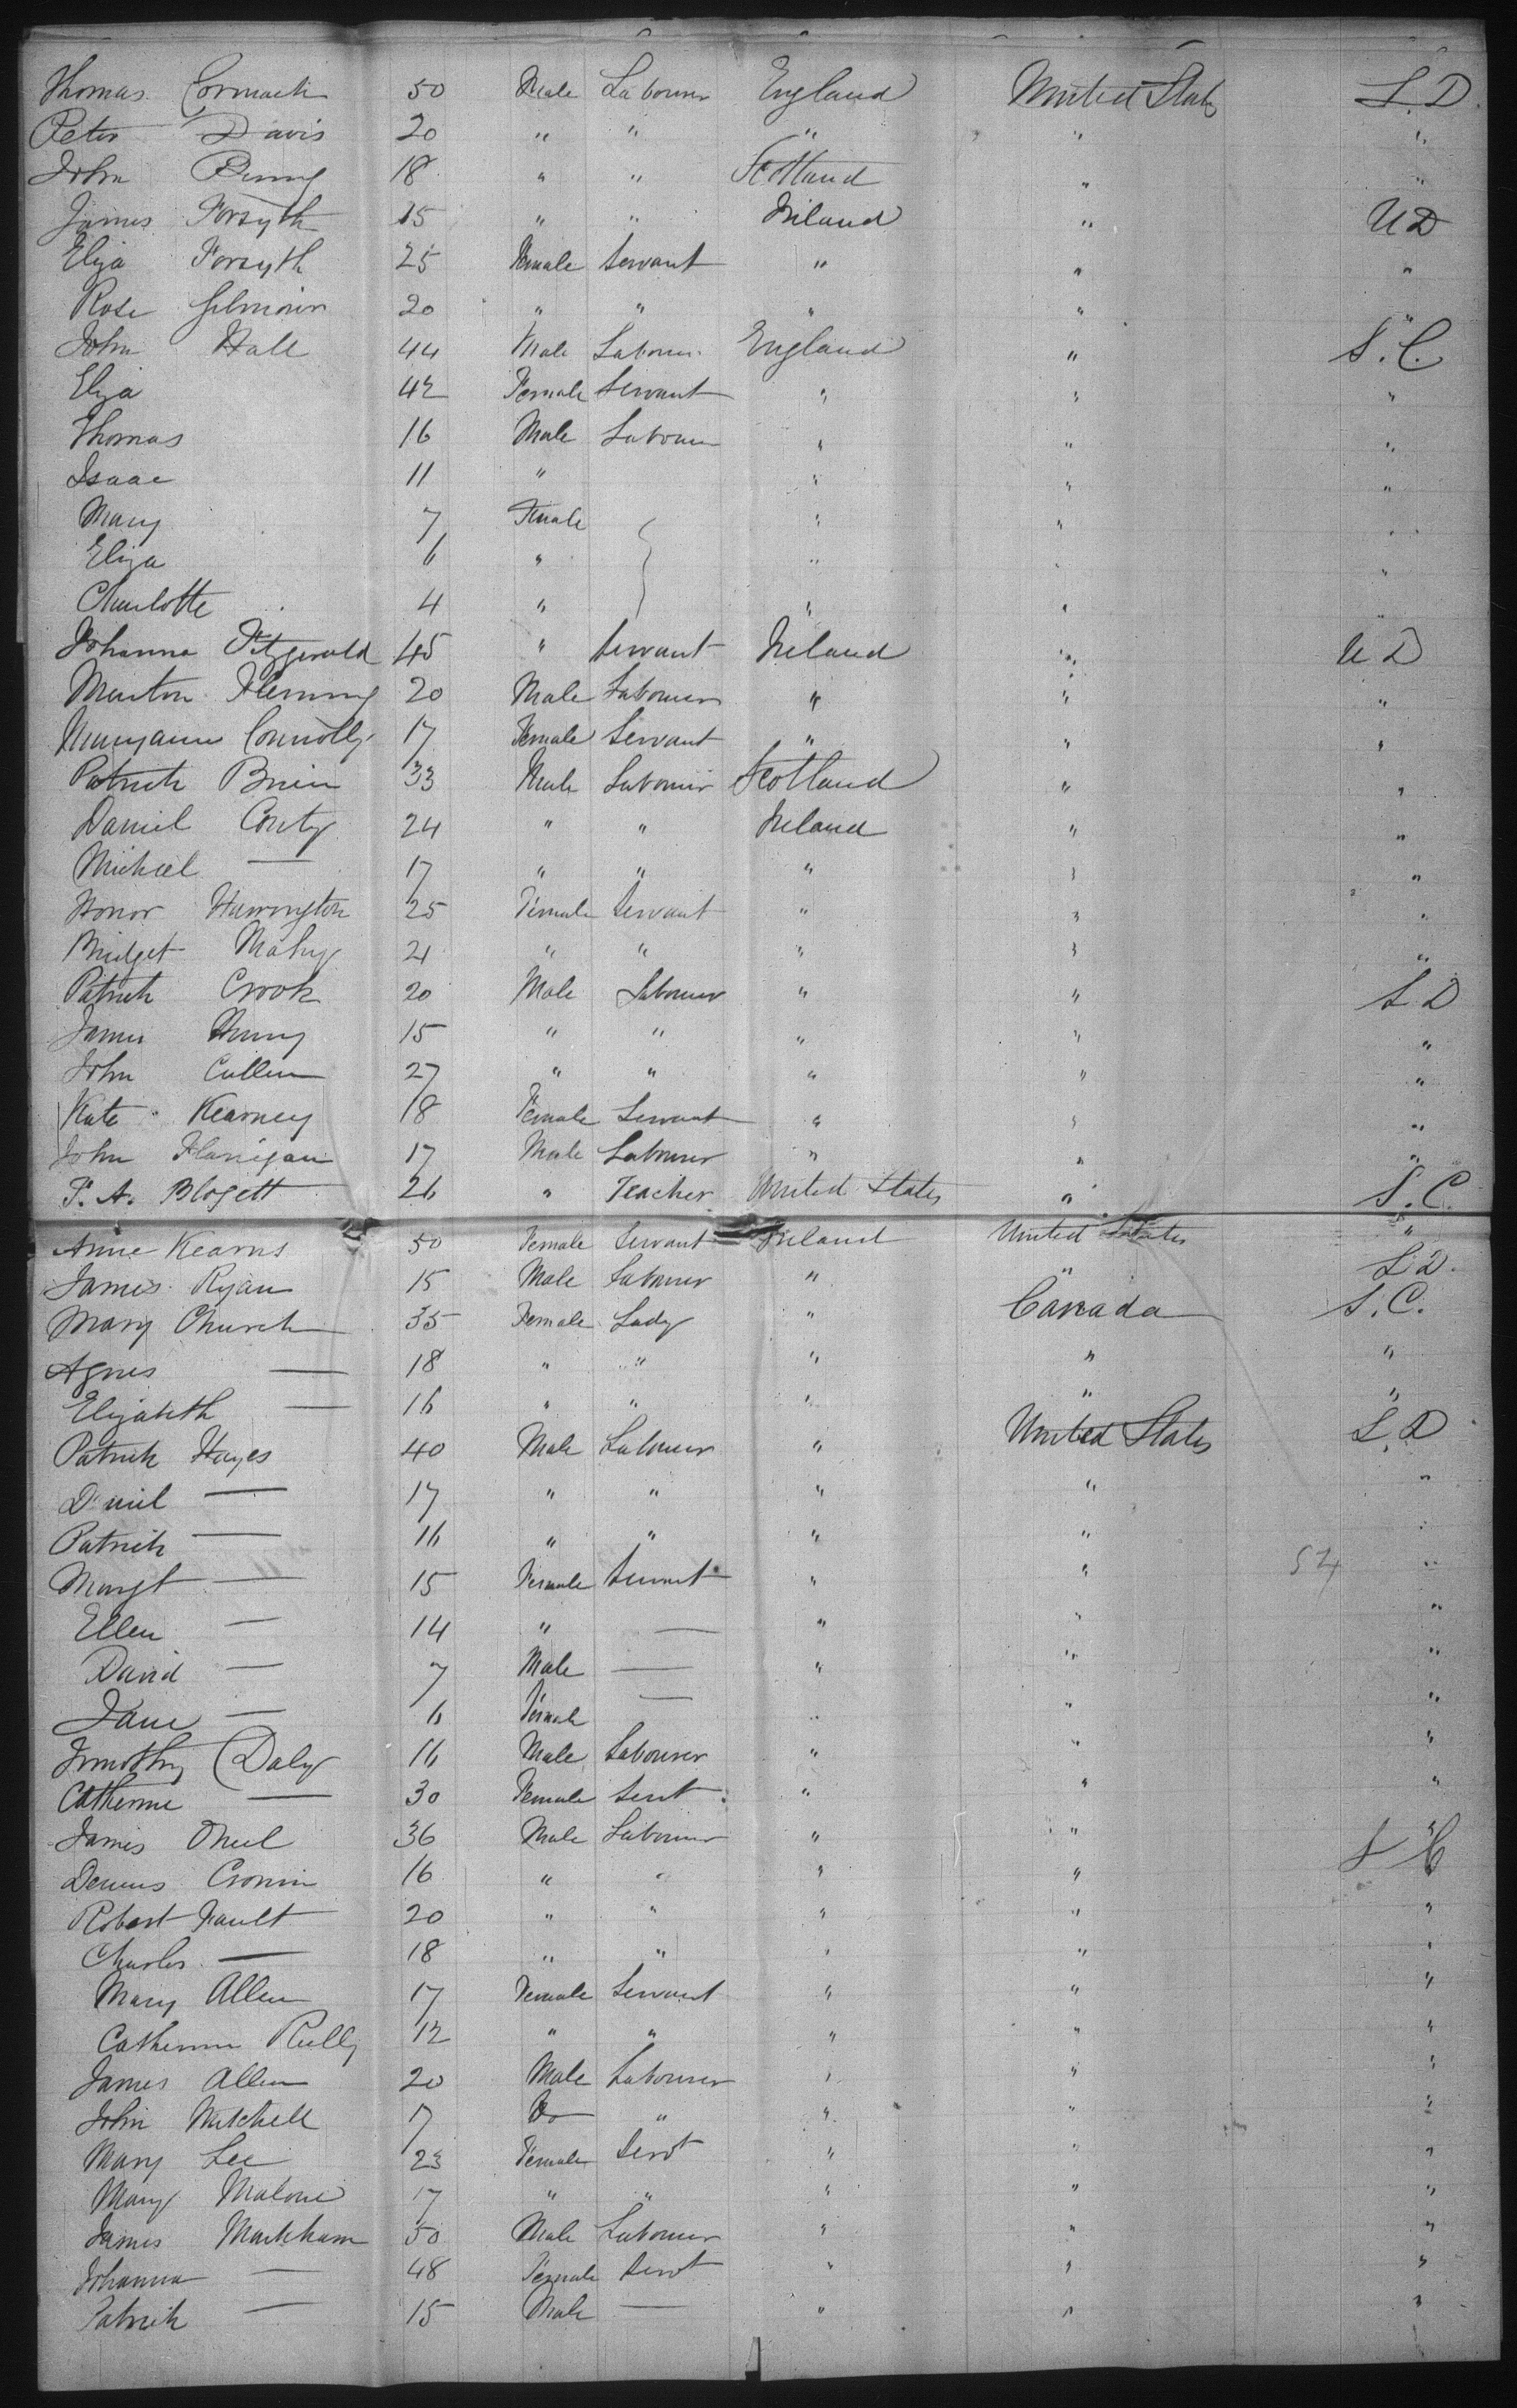 Thomas Cormack 50 Male Labourer England United States L. D.
Peter Davis 20 " " " " "
John 18 " " Scotland " "
James Forsyth 15 " " Ireland " U D
Eliza Forsyth 25 Female Servant " " "
Rose Gilmour 20 " " " " "
John Hall 44 Male Labourer England " S. C.
Eliza 42 Female Servant " " "
Thomas 16 Male Labourer " " "
Isaac 11 " " " "
Mary 7 Female " " "
Eliza 6 " " " "
Charlotte 4 " " " "
Johanna Fitzgerald 45 " Servant Ireland " U D
Fleming 20 Male Labourer " " "
Maryann Connolly 17 Female Servant " " "
Patrick Brien 33 Male Labourer Scotland " "
Daniel 24 " " Ireland " "
Michael — 17 " " " " "
Honor Harrington 25 Female Servant " " "
Bridget 21 " " " " "
Patrick Crook 20 Male Labourer " " L D
James 15 " " " " "
John Cullen 27 " " " " "
Kate Kearney 18 Female Servant " " "
John Flanigan 17 Male Labourer " " "
F. A. Blogett 26 " Teacher United States " S. C.
Anne Kearns 50 Female Servant Ireland United States "
James Ryan 15 Male Labourer " " L D.
Mary Church 35 Female Lady " Canada S. C.
Agnes — 18 " " " " "
Elizabeth — 16 " " " " "
Patrick Hayes 40 Male Labourer " United States L. D
Daniel — 17 " " " " "
Patrick — 16 " " " " "
Margt — 15 Female Servant " " 54 "
Ellen — 14 " — " " "
David — 7 Male — " " "
Jane — 6 Female — " " "
Timothy Daly 16 Male Labourer " " "
Catherine — 30 Female Servt " " "
James Oneil 36 Male Labourer " " "
Dennis Cronin 16 " " " " S C
Robert Fault 20 " " " " "
Charles — 18 " " " " "
Mary Allen 17 Female Servant " " "
Catherine Reilly 12 " " " " "
James Allen 20 Male Labourer " " "
John Mitchell 17 Do " " " "
Mary Lee 23 Female Servt " " "
Mary Malone 17 " " " " "
James Markham 50 Male Labourer " " "
Johanna — 48 Female Servt " " "
Patrick — 15 Male — " " "